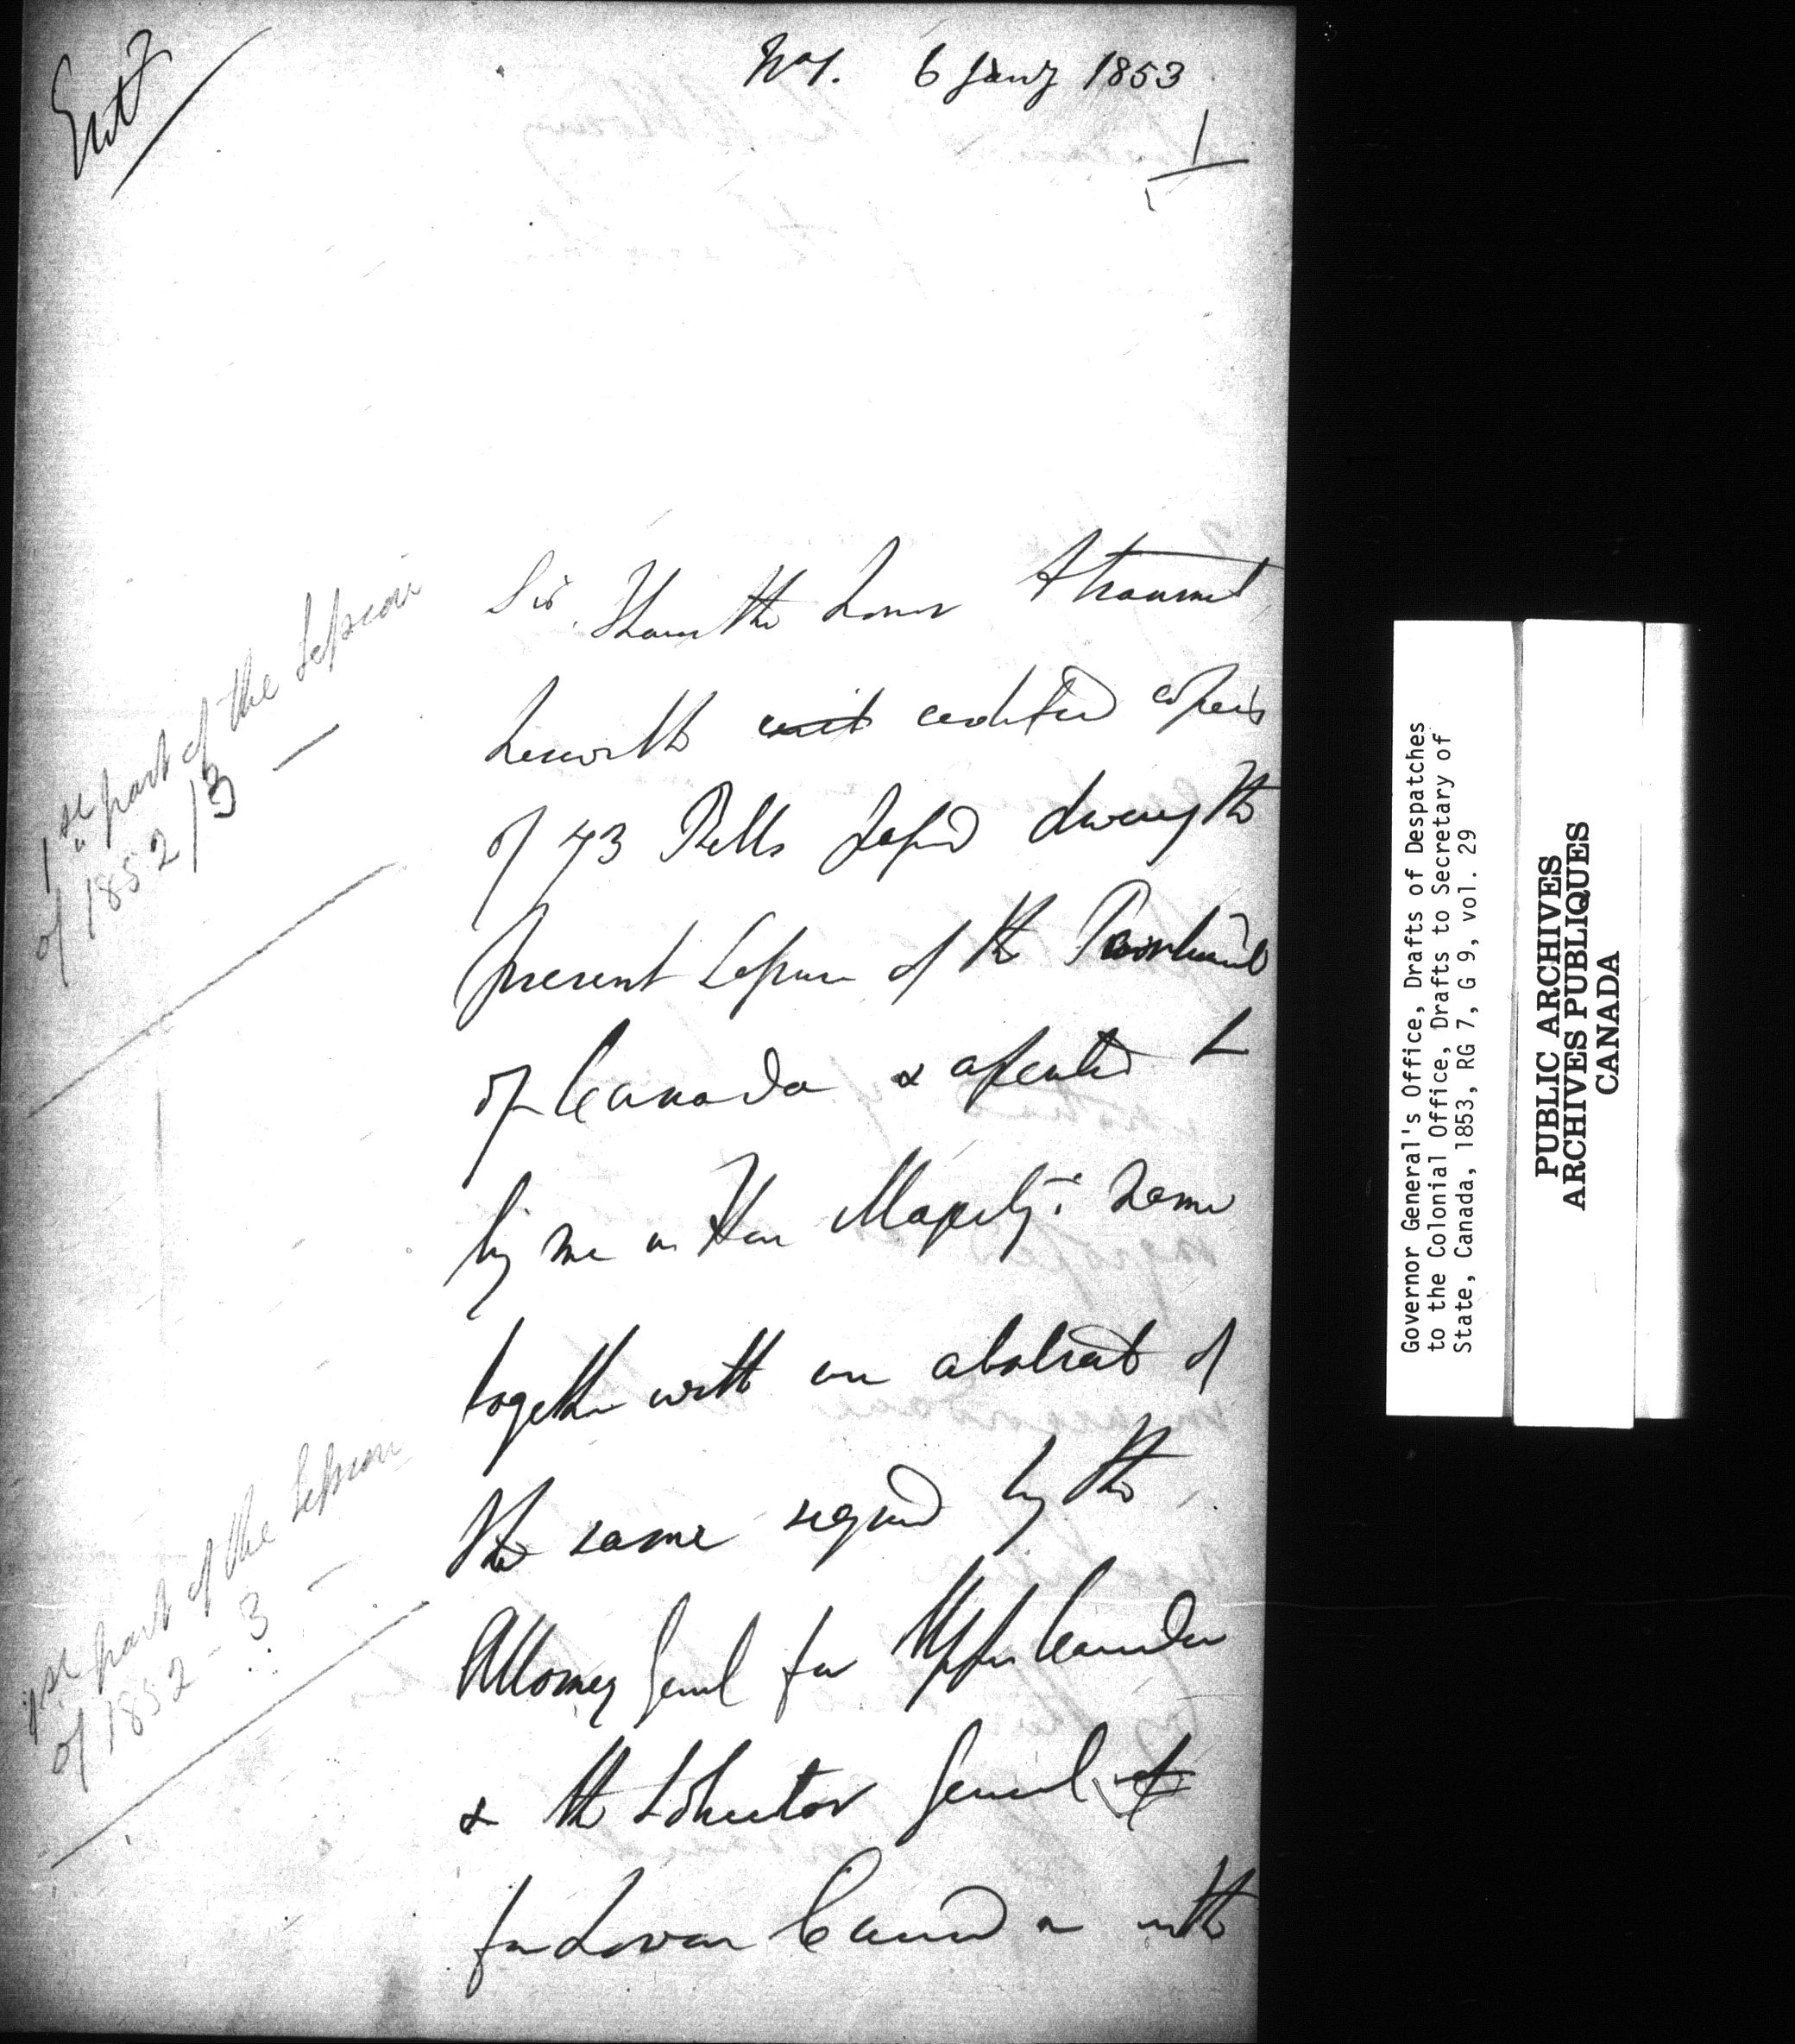 Entd
No 1. 6 Jany 1853
1
Sir, I have the honor to transmit
herewith certified copies
of 73 Bills passed during the
present Session of the Parliament
of Canada & assented to
by me in Her Majesty's name
together with an abstract of
the same signed by the
Attorney Genl for Upper Canada
& the Solicitor General
for Lower Canada with
1st part of the Session
of 1852/3 —
1st part of the Session
of 1852 - 3 —
Governor General's Office, Drafts of Despatches
to the Colonial Office, Drafts to Secretary of
State, Canada, 1853, RG 7, G 9, vol. 29
PUBLIC ARCHIVES
ARCHIVES PUBLIQUES
CANADA